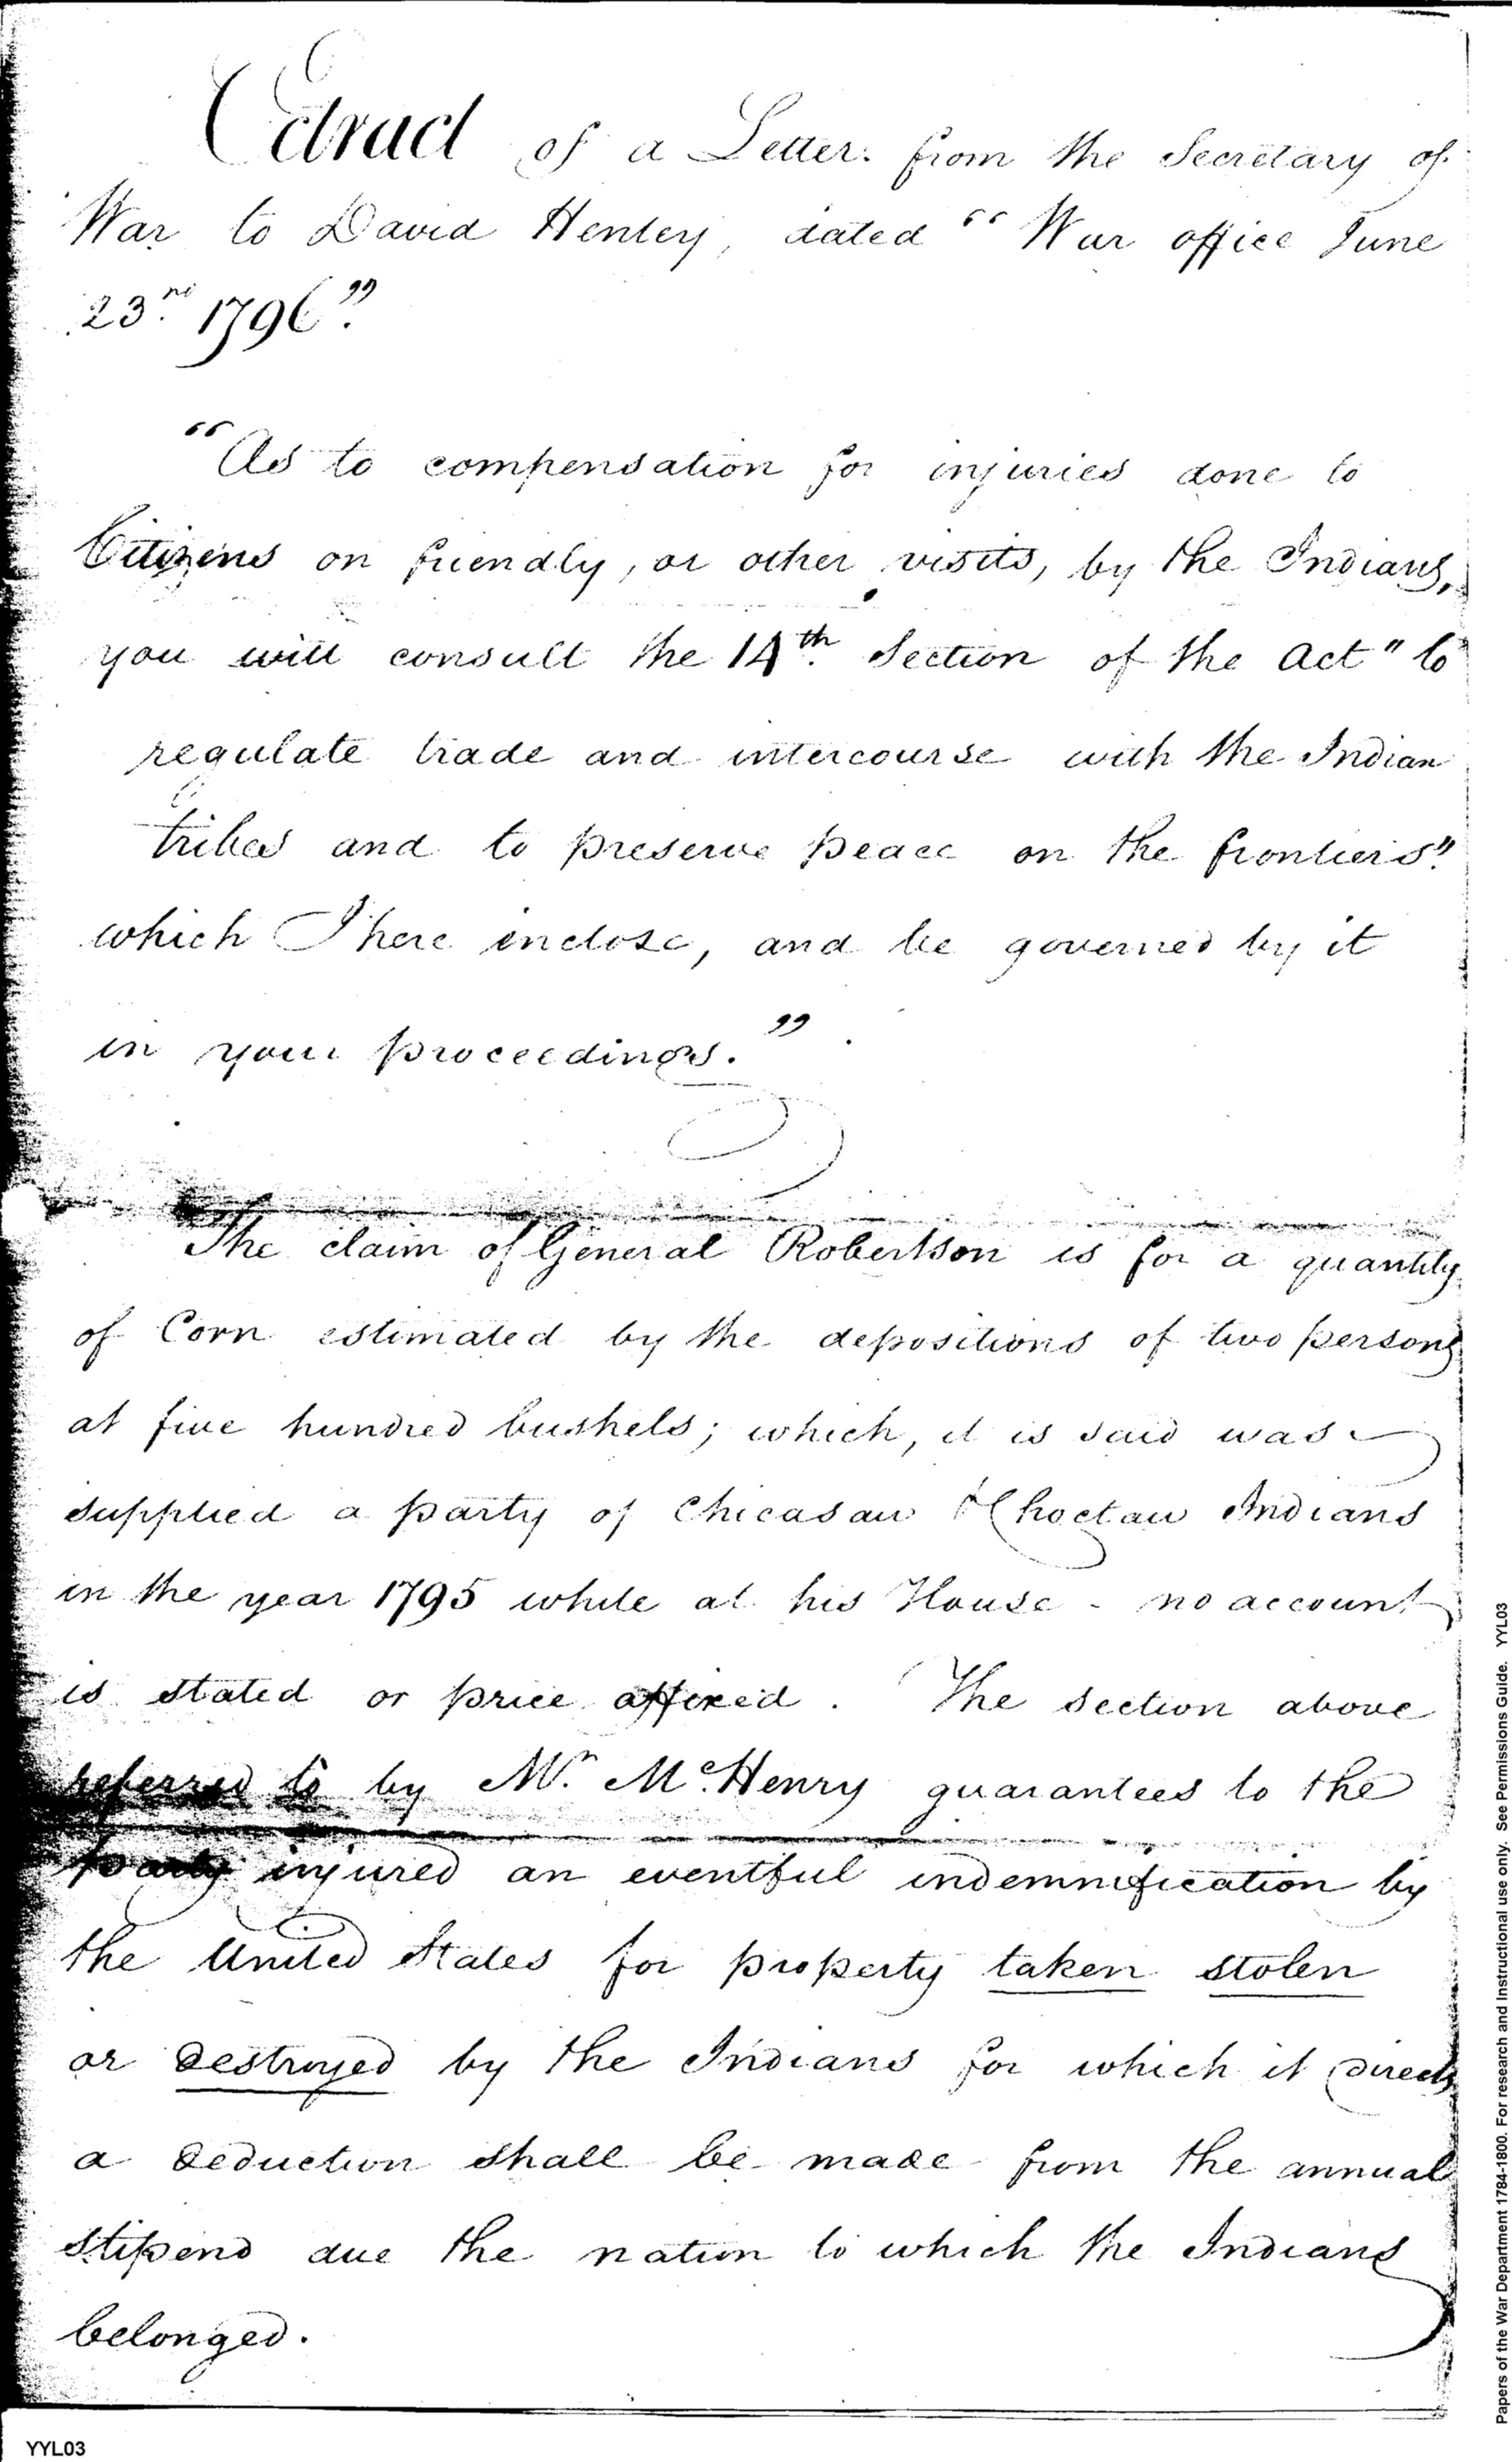 Extract of a Letter from the Secretary of
War to David Henley, dated "War office June
23rd 1796".
"As to compensation for injuries done to
Citizens on friendly, or other visits, by the Indians,
you will consult the 14th Section of the act "to
regulate trade and intercourse with the Indian
tribes and to preserve peace on the frontiers".
which I here inclose, and be governed by it
in your proceedings."
The claim of General Robertson is for a quantity
of Corn estimated by the depositions of two persons
at five hundred bushels; which, it is said was
supplied a party of Chicasaw & Choctaw Indians
in the year 1795 while at his House - no account
is stated or price affixed. The section above
referred to by Mr. McHenry guarantees to the
party injured an eventful indemnification by
the United States for property taken stolen
or destroyed by the Indians for which it directs
a deduction shall be made from the annual
stipend due the nation to which the Indians
belonged.
YYL03
Papers of the War Department 1784-1800. For research and Instructional use only. See Permissions Guide. YYL03